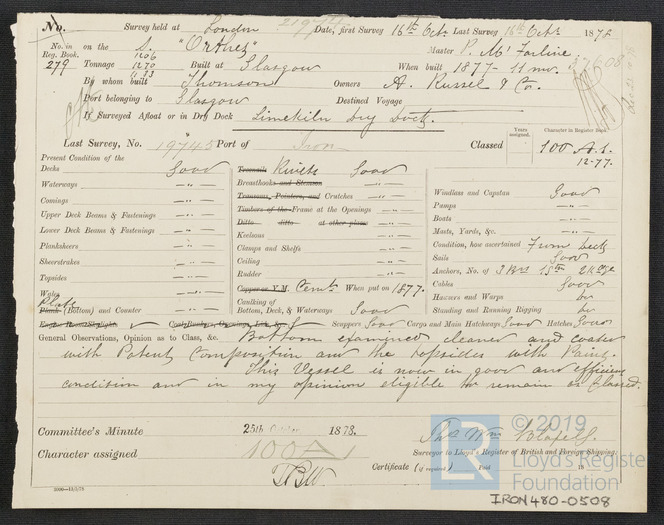 No. Survey held at London Date, first Survey 16th Octr Last Survey 16th Octr 1878
No. in Reg. Book. 279 on the S. "Orthes" Master P. McFarline
1206
Tonnage 1270 Built at Glasgow When built 1877 - 11 mo.
1133
By whom built Thomson Owners A. Russel & Co.
Port belonging to Glasgow Destined Voyage
If Surveyed Afloat or in Dry Dock Limekiln Dry Dock.
Last Survey, No. 19745 Port of Iron Classed Years assigned. Character in Register Book. 100 A.1.
12-77.
Present Condition of the
Decks Good
Waterways — " —
Comings — " —
Upper Deck Beams & Fastenings — " —
Lower Deck Beams & Fastenings — " —
Plankshears — " —
Sheerstrakes — " —
Topsides — " —
Wales — " —
Plate
Plank (Bottom) and Counter — " —
Treenails Rivets Good
Breasthooks and Stemson — " —
Transoms, Pointers, and Crutches — " —
Timbers of the Frame at the Openings — " —
Ditto ditto at other places — " —
Keelsons — " —
Clamps and Shelfs — " —
Ceiling — " —
Rudder — " —
Copper or Y.M. Cemt. When put on 1877.
Caulking of
Bottom, Deck, & Waterways Good
Windlass and Capstan Good
Pumps — " —
Boats — " —
Masts, Yards, &c. — " —
Condition, how ascertained From deck
Sails Good
Anchors, No. of 3 Brs 1 Stm 2 Kdge
Cables Good
Hawsers and Warps Do
Standing and Running Rigging Do
Scuppers Good Cargo and Main Hatchways Good Hatches Good
General Observations, Opinion as to Class, &c. Bottom examined cleaned and coated
with Patent Composition and the topsides with Paint.
This Vessel is now in good and efficient
condition and in my opinion eligible to remain as Classed.
Committee's Minute 25th October 1878.
Character assigned 100A1
Thos. Wm.
Surveyor to Lloyd's Register of British and Foreign Shipping.
Certificate (if required) Paid 18
2000—13/5/78
© 2019
Lloyd's Register
Foundation
LR
IRON480-0508